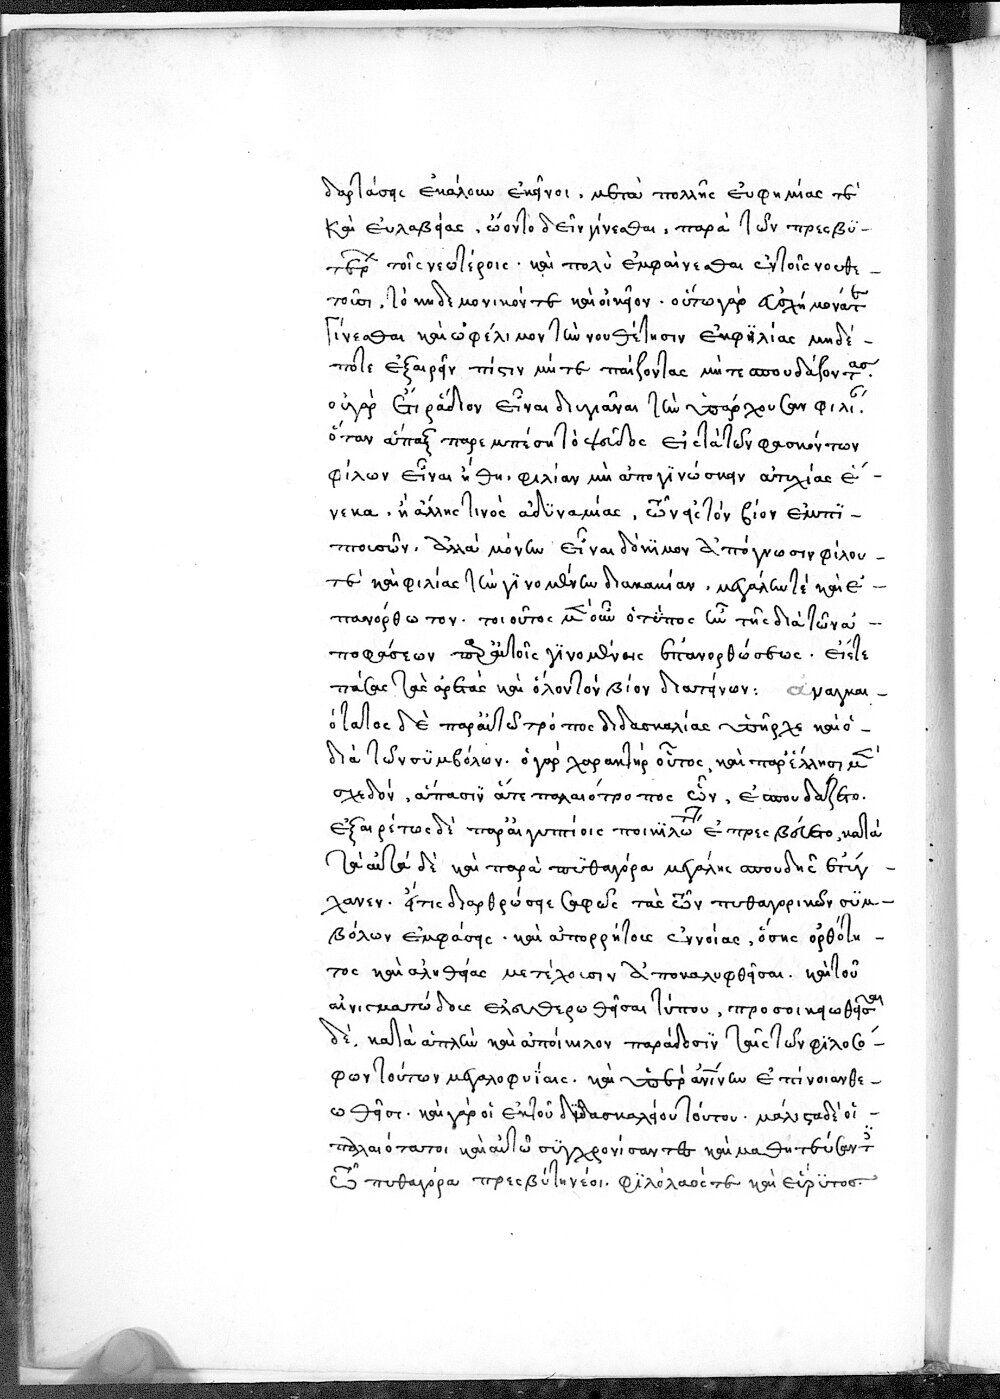 δαρτάσεις ἐκάλουν ἐκεῖνοι, μετὰ πολλῆς εὐφημίας τὲ
καὶ εὐλαβείας, ὤοντο δεῖν γίνεσθαι, παρὰ τῶν πρεσβυ-
τέρων τοῖς νεωτέροις. καὶ πολὺ ἐμφαίνεσθαι ἐν τοῖς νουθε-
τοῦσι, τὸ κηδεμονικόν τε καὶ οἰκεῖον. οὕτω γὰρ εὐσχήμονά τε
γίνεσθαι καὶ ὠφέλιμον τὴν νουθέτησιν ἐκ φιλίας μηδέ-
ποτε ἐξαιρεῖν πίστιν μήτε παίζοντας μήτε σπουδάζοντας.
οὐ γὰρ ἔτι ῥάδιον εἶναι διυγιᾶναι τὴν ὑπάρχουσαν φιλίαν.
ὅταν ἅπαξ παρεμπέσῃ τὸ ψεῦδος εἰς τὰ τῶν φασκόντων
φίλων εἶναι ἤθη. φιλίαν μὴ ἀπογινώσκειν ἀτυχίας ἕ-
νεκα. ἢ ἄλλης τινὸς ἀδυναμίας, τῶν εἰς τὸν βίον ἐμπι-
πτουσῶν. ἀλλὰ μόνην εἶναι δόκιμον ἀπόγνωσιν φίλου
τὲ καὶ φιλίας τὴν γινομένην διὰ κακίαν, μεγάλην τὲ καὶ ἐ-
πανόρθωτον. τοιοῦτος μὲν οὖν ὁ τύπος ἦν τῆς διὰ τῶν ἀ-
ποφάσεων παρ' αὐτοῖς γινομένης ἐπανορθώσεως. εἴς τε
πάσας τὰς ἀρετὰς καὶ ὅλον τὸν βίον διατείνων: ἀναγκαι-
ότατος δὲ παρ' αὐτῷ τρόπος διδασκαλίας ὑπῆρχε καὶ ὁ
διὰ τῶν συμβόλων. ὁ γὰρ χαρακτὴρ οὗτος, καὶ παρ' ἕλλησι μὲν
σχεδὸν, ἅπασιν ἅτε παλαιότροπος ὢν, ἐσπουδάζετο.
ἐξαιρέτως δὲ παρ' αἰγυπτίοις ποικιλώτατα ἐπρεσβεύετο, κατὰ
τὰ αὐτὰ δὲ καὶ παρὰ πυθαγόρα μεγάλης σπουδῆς ἐτύγ-
χανεν. εἴ τις διαρθρώσειε σαφῶς τὰς τῶν πυθαγορικῶν συμ-
βόλων ἐμφάσεις. καὶ ἀπορρήτους ἐννοίας, ὅσης ὀρθότη-
τος καὶ ἀληθείας μετέχουσιν ἀποκαλυφθεῖσαι. καὶ τοῦ
αἰνιγματώδους ἐλευθερωθεῖσαι τύπου, προσοικειωθεῖσαι
δὲ, κατὰ ἁπλῆν καὶ ἀποίκιλον παράδοσιν ταῖς τῶν φιλοσό-
φων τούτων μεγαλοφυΐαις. καὶ ὑπὲρ ἀνθρωπίνην ἐπίνοιαν θε-
ωθεῖσι. καὶ γὰρ οἱ ἐκ τοῦ διδασκαλείου τούτου. μάλιστα δὲ οἱ
παλαιότατοι καὶ αὐτῷ συγχρονίσαντες καὶ μαθητεύσαντες
τῷ πυθαγόρα πρεσβύτῃ νέοι. φιλόλαός τε καὶ εὔρυτος.